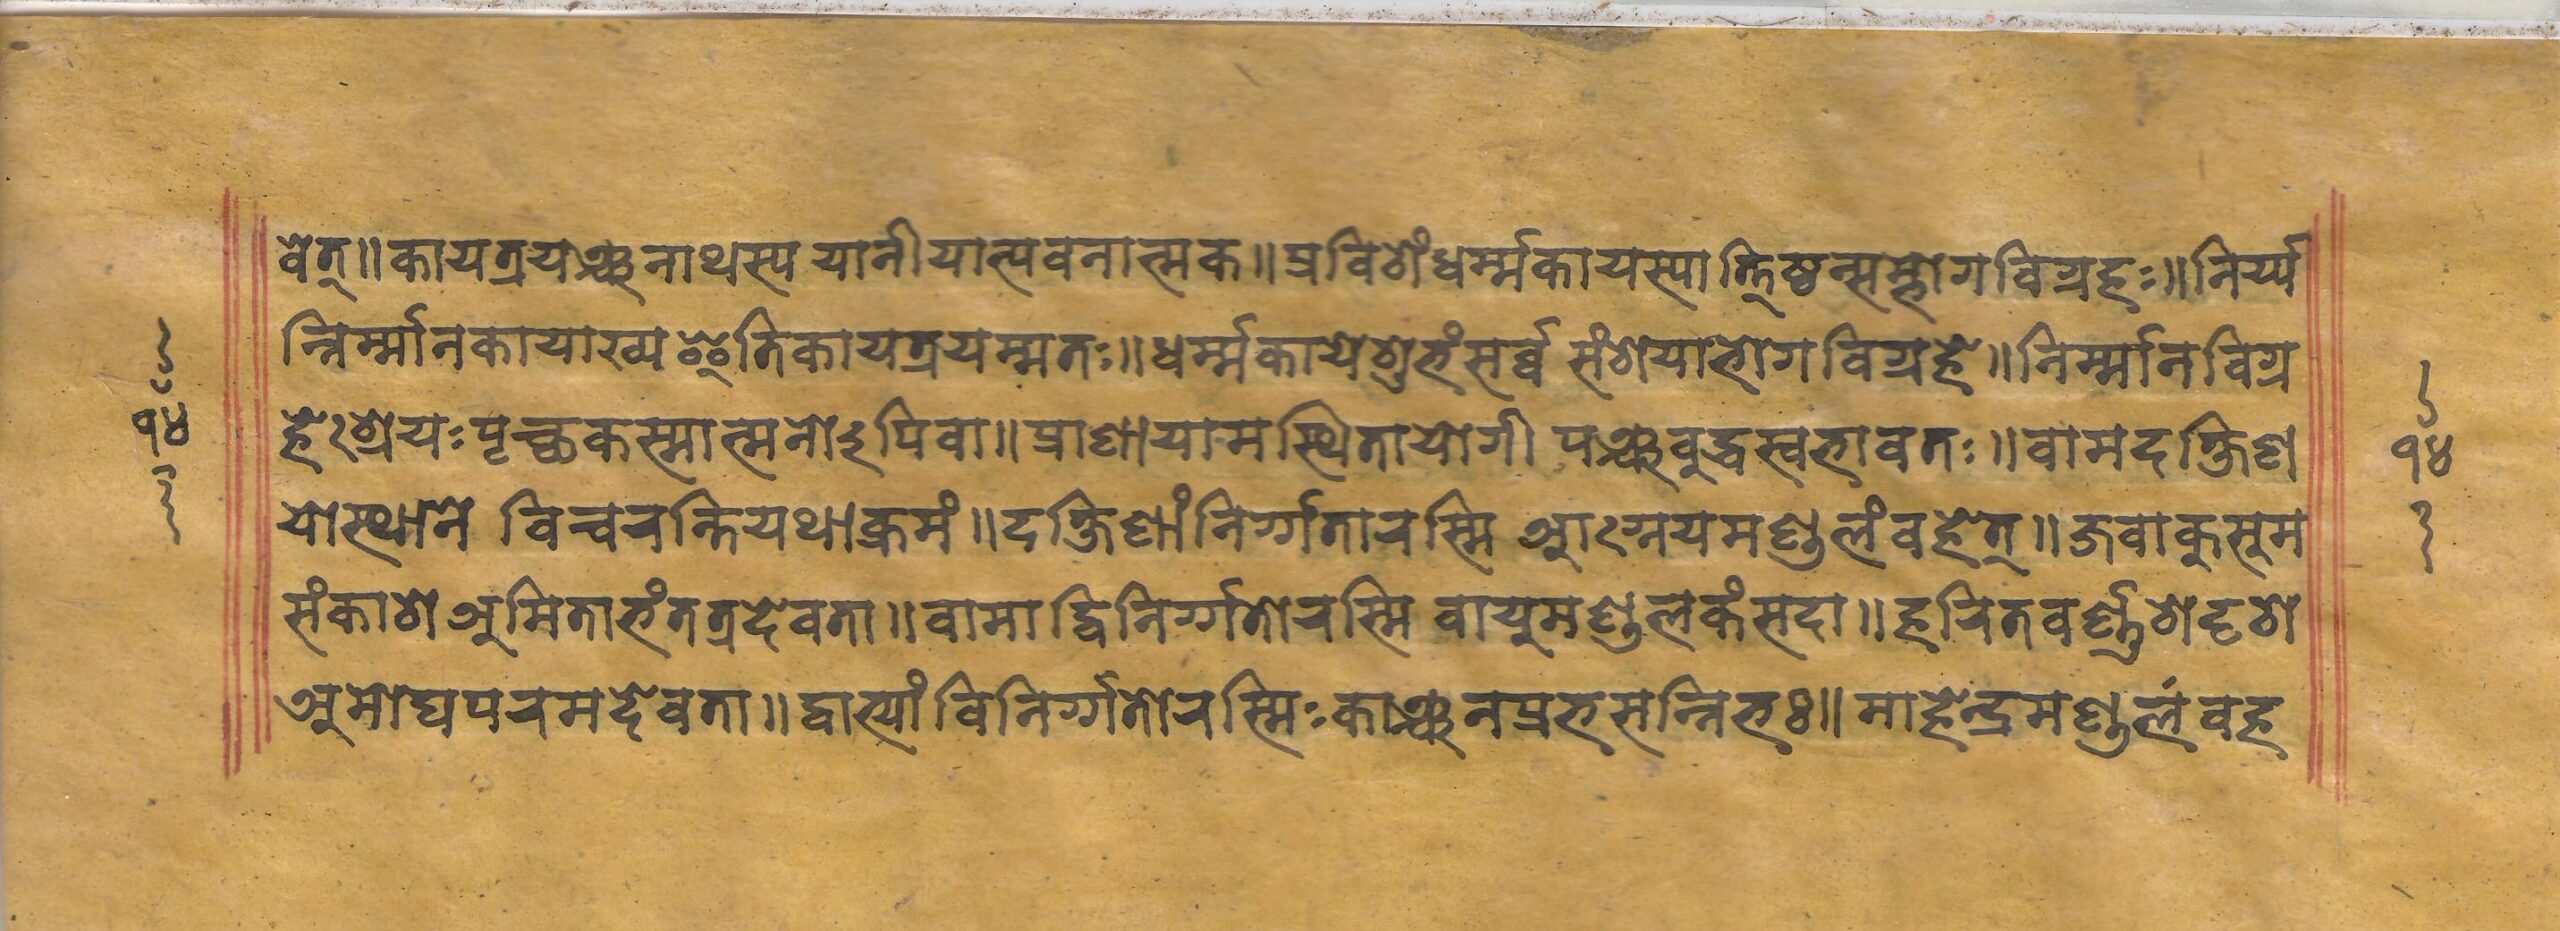 वेत्॥कायत्रयञ्चनाथस्य यानीयात्पवनात्मक॥प्रविशेंधर्म्मकायस्यात्तिष्ठन्सम्भोगविग्रहः॥निर्य्य
न्निर्म्मानकायाख्य इतिकायत्रयम्मतः॥धर्म्मकायेशुभंसर्व्व संशयाभोगविग्रहे॥निर्म्मानविग्र
हेःश्रेयःपृच्छकस्मात्मनोऽपिवा॥प्राणायामस्थितायोगी पञ्चबुद्धस्वभावतः॥वामदक्षिण
योस्थाने विचरन्तियथाक्रमं॥दक्षिणांनिर्ग्गतारस्मि आःग्नयमण्डलंवहेत्॥जवाकुसुम
संकाशेअमिताभंतत्रदेवता॥वामाद्विनिर्ग्गतोरस्मि वायुमण्डलकंसदा॥हरितवर्ण्णशेदृशे
अमोघपरमदेवता॥द्वाभ्यांविनिर्ग्गतोरस्मिःकाञ्चनप्रभसन्निभः॥माहेन्द्रमण्डलंवह
१४
१४